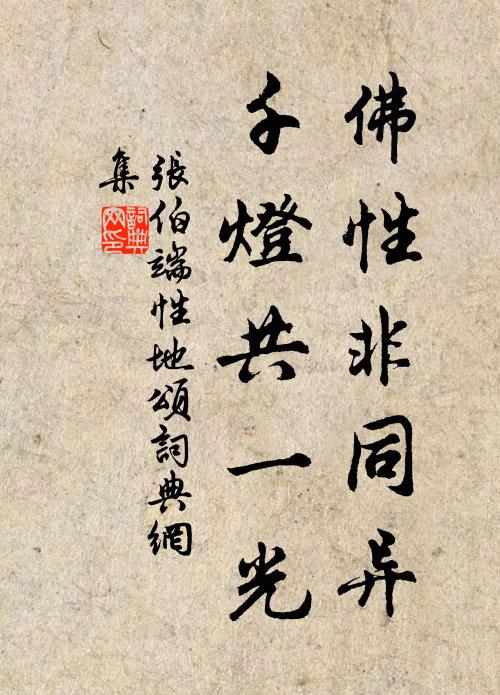 佛性非同异
千燈共一光
張伯端性地頌詞典網
集
詞典网印